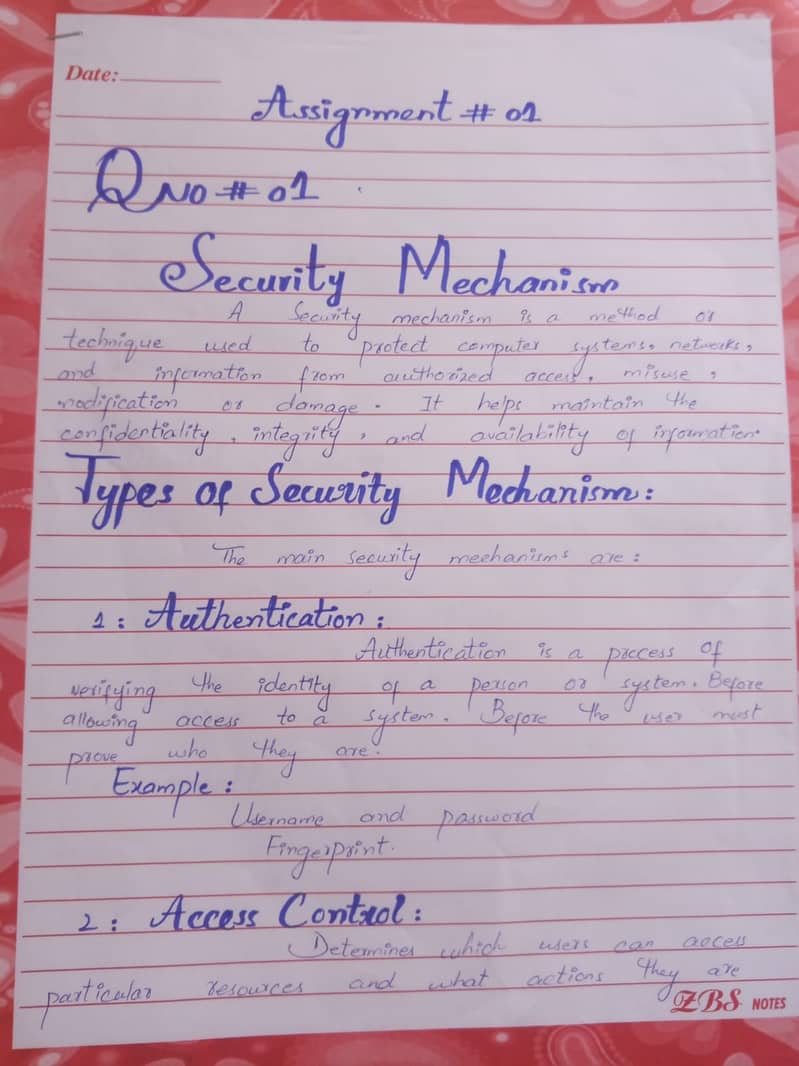 Date:
Assignment # 01
Q No # 01
Security Mechanism
A Security mechanism is a method or
technique used to protect computer systems, networks,
and information from authorized access, misuse,
modification or damage. It helps maintain the
confidentiality, integrity, and availability of information.
Types of Security Mechanism:
The main security mechanisms are:
1: Authentication:
Authentication is a process of
verifying the identity of a person or system. Before
allowing access to a system. Before the user must
prove who they are.
Example:
Username and password
Fingerprint.
2: Access Control:
Determines which users can access
particular resources and what actions they are
ZBS NOTES